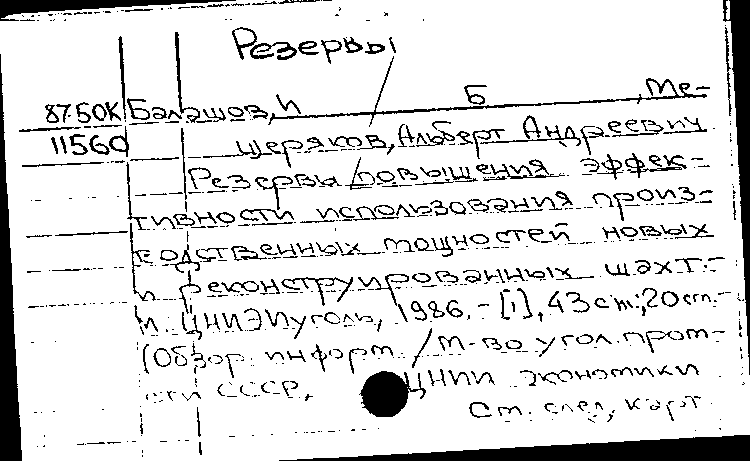 Резервы
87.50К Балашов, И Б , Ме-
11560 щеряков, Альберт Андреевич
Резервы повышения эффек-
тивности использования произ-
водственных мощностей новых
и реконструированных шахт.-
М. ЦНИЭИуголь, 1986.-[1], 43 ст; 20 см.-
(Обзор. информ. / М-во угол. пром-
сти СССР, ЦНИИ экономики
См. след, карт